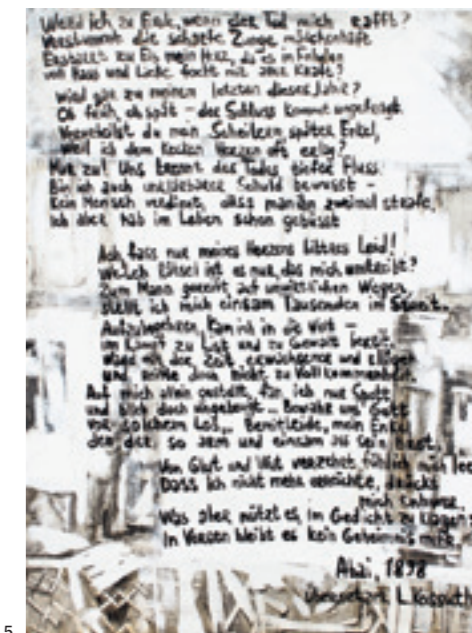 Werd ich zu Erde, wenn der Tod mich rafft?
Verstummt die scharfe Zunge
Erstarrt zu Eis mein Herz, da es in
voll Hass und Liebe focht mit aller Kraft?
Wird gar zu meinem letzten dieses Jahr?
Ob früh, ob spät - der Schluss kommt ungefragt
Verurteilst du mein Scheitern, später Enkel,
Weil ich dem Herzen oft
Nur zu! Uns trennt des Todes tiefer Fluss.
Bin ich auch Schuld bewusst -
Kein Mensch verdient, dass man ihn zweimal strafe,
Ich aber hab im Leben schon gebüsst
Ach, fass nur meines Herzens bittres Leid!
Welch Rätsel ist es nur, das mich umtreibt?
Zum Mann gereift auf unwirtlichen Wegen,
Stellt ich mich einsam Tausenden im Streit.
kam ich in die Wut -
im Kampf zu List und zu Gewalt bereit.
mit der Zeit, erwachsener und klüger
und doch nicht zu Vollkommenheit.
Auf mich allein gestellt, fand ich nur Spott
und blieb doch ungebeugt... Bewahr uns Gott
vor solchem Los... Bemitleide, mein Enkel
den der, so arm und einsam
Von Glut und Wut verzehrt fühl ich mich leer
Dass ich nicht mehr erreichte, drückt
mich
Was aber nützt es, im Gedicht zu klagen?
In Versen bleibt es kein Geheimnis mehr.
Abai, 1898
Übersetzt L. Kossuth
5